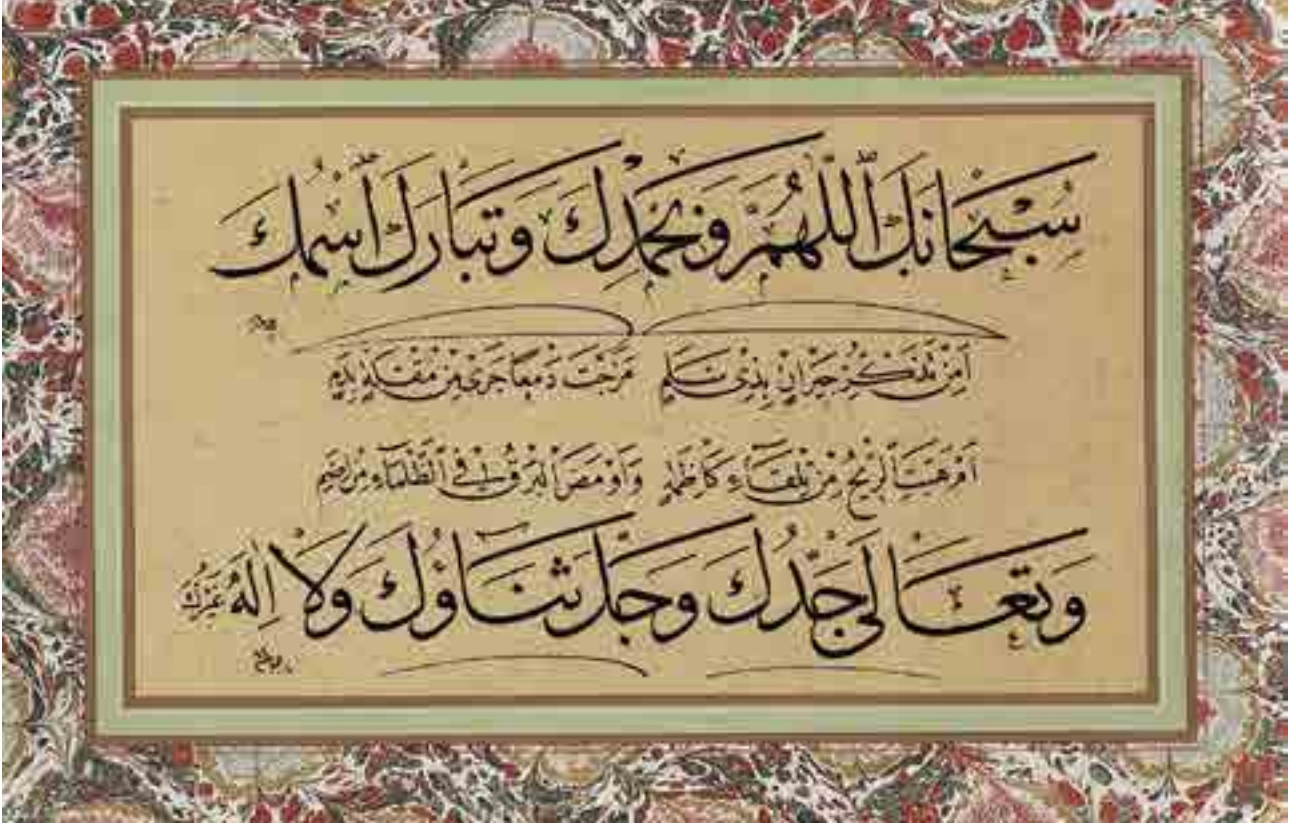 سُبْحَانَكَ اللّٰهُمَّ وَبِحَمْدِكَ وَتَبَارَكَ اسْمُكَ
أَمِنْ تَذَكُّرِ جِيرَانٍ بِذِي سَلَمٍ مَزَجْتَ دَمْعًا جَرَى مِنْ مُقْلَةٍ بِدَمِ
أَمْ هَبَّتِ الرِّيحُ مِنْ تِلْقَاءِ كَاظِمَةٍ وَأَوْمَضَ الْبَرْقُ فِي الظَّلْمَاءِ مِنْ إِضَمِ
وَتَعَالَى جَدُّكَ وَجَلَّ ثَنَاؤُكَ وَلَا إِلٰهَ غَيْرُكَ